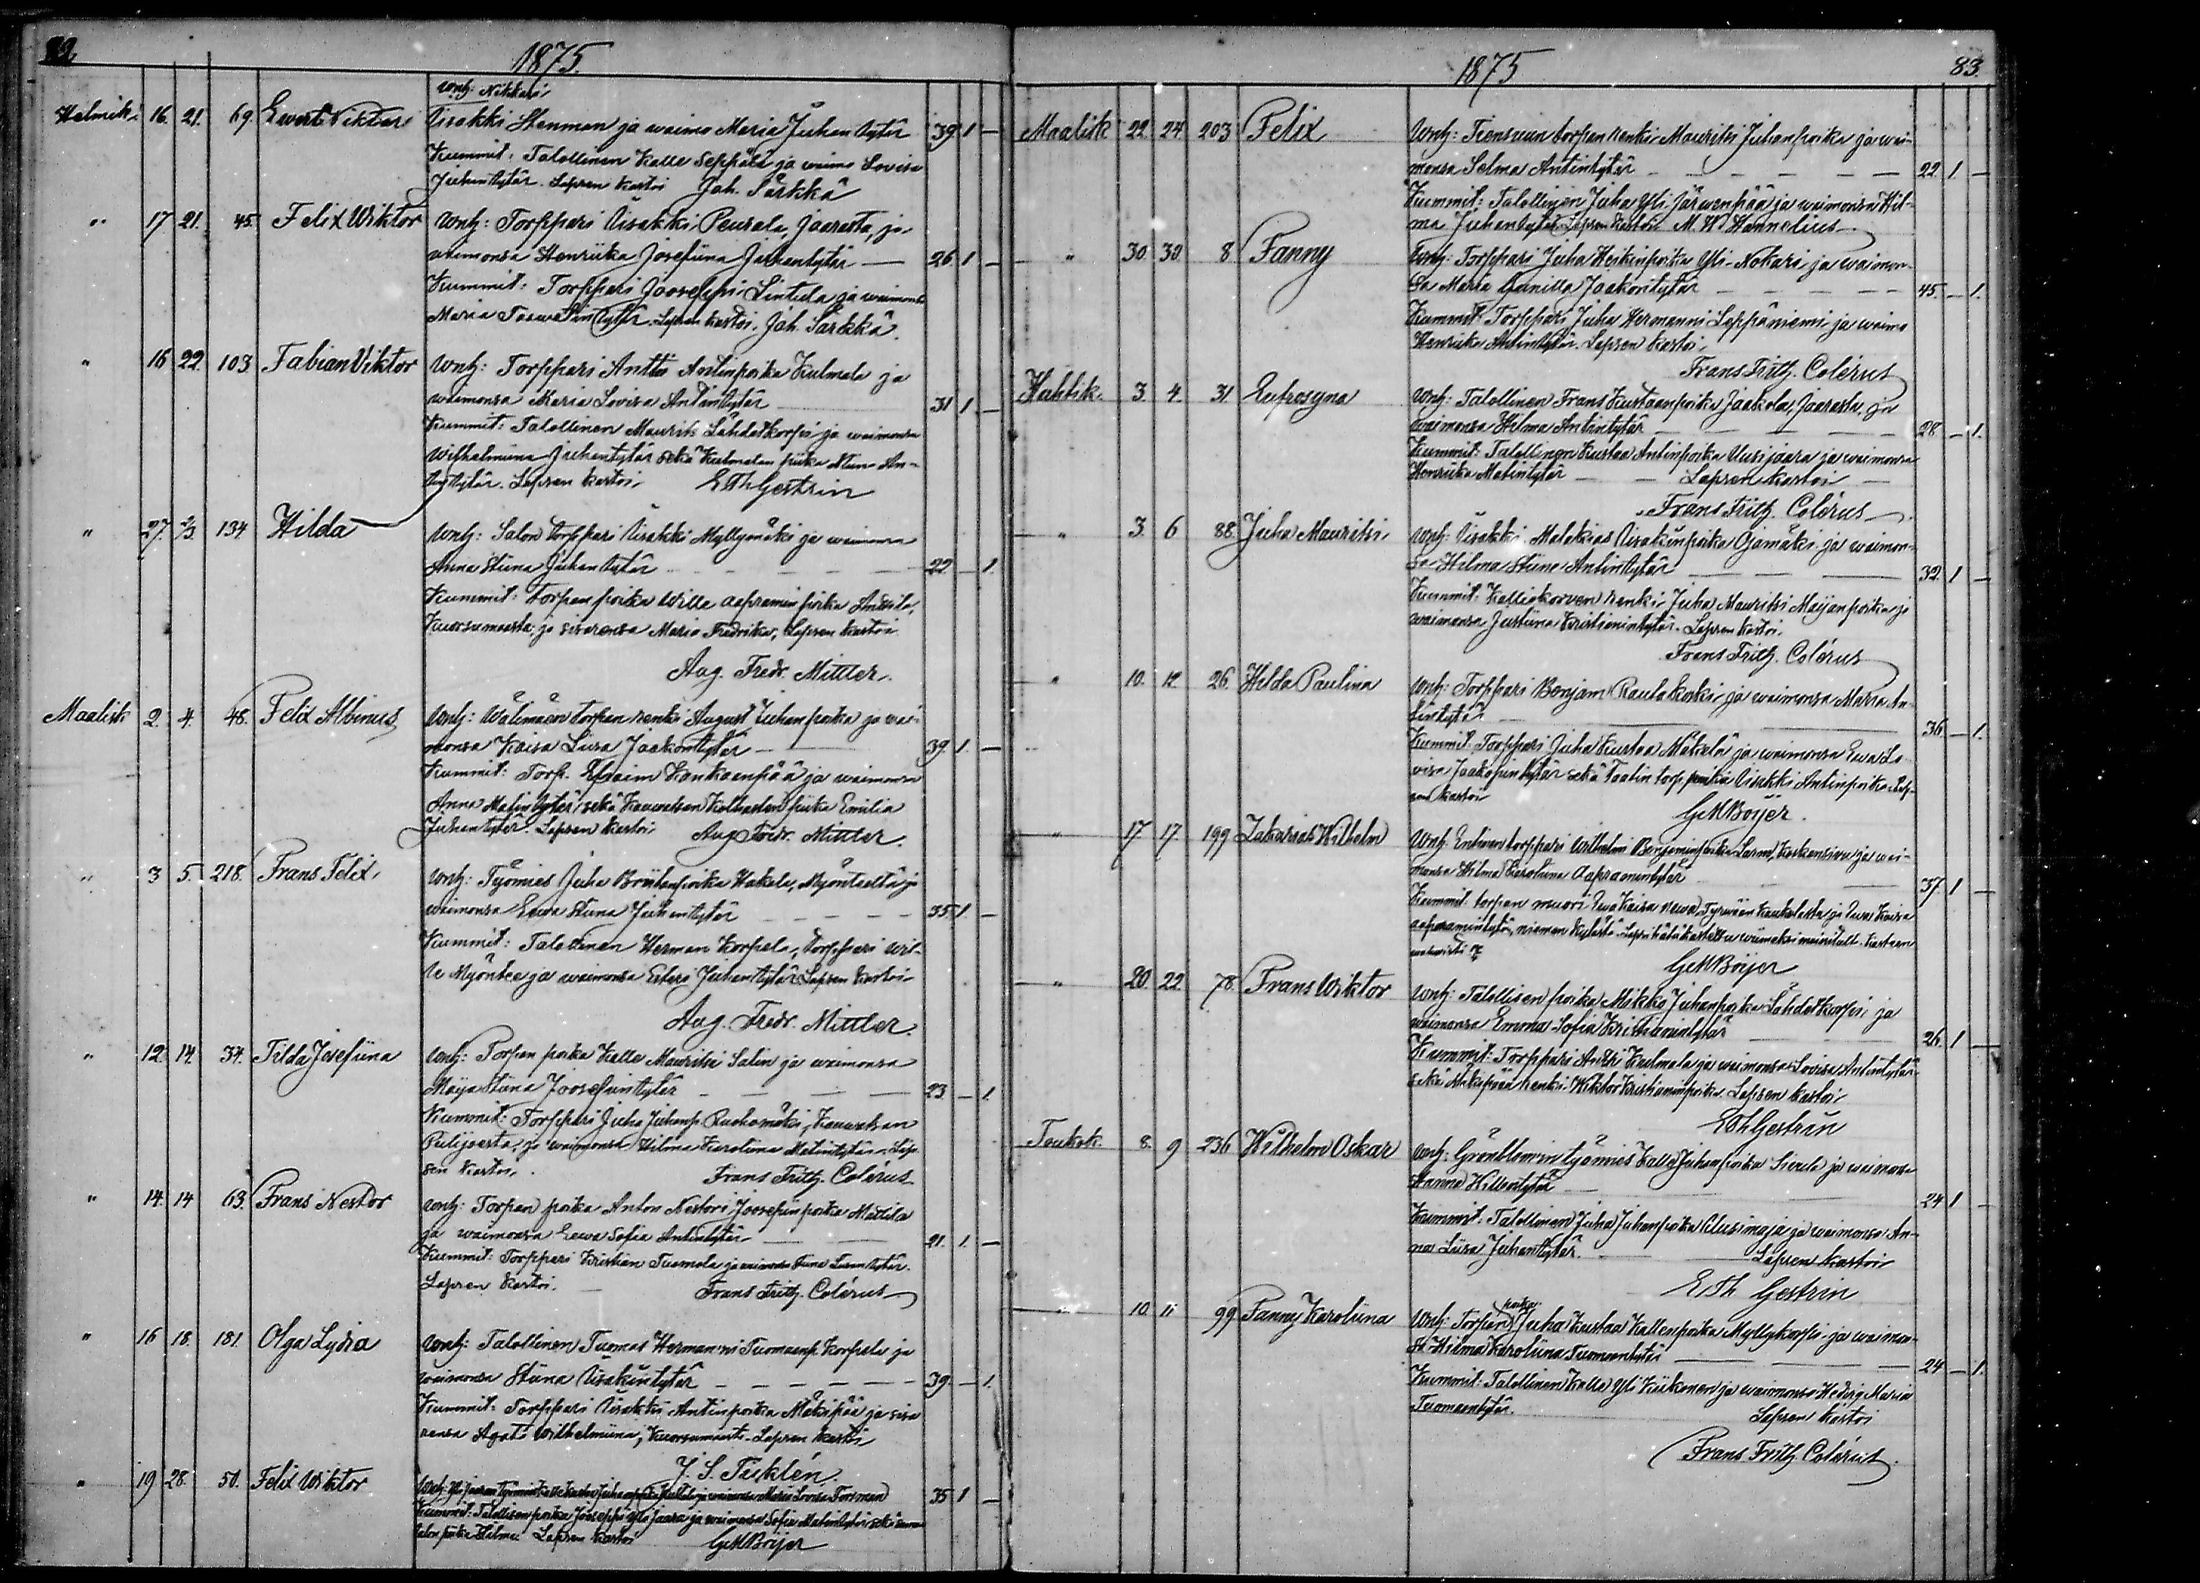 82.
1875.
Wnh: Nikkari
Helmik. 16. 21. 69 Evert Viktor Iisakki Stenman ja waimo Maria Juhantytär 39 1 —
Kummit: Talollinen Kalle Seppälä ja waimo Lovisa
Juhantytär. Lapsen kastoi Joh. Särkkä
" 17 21. 45. Felix Wiktor Wnh: Torppari Iisakki Peurala, Jaarasta, ja
waimonsa Henriika Josefiina Juhantytär — 26 1 —
Kummit: Torppari Jooseppi Lintula ja waimonsa
Maria Taawetintytär. Lapsen kastoi. Joh. Särkkä.
" 16 22. 103 Fabian Viktor Wnh: Torppari Antti Antinpoika Kulmala ja
waimonsa Maria Lovisa Antintytär 31 1 —
Kummit: Talollinen Maurits Lähdekorpi ja waimonsa
Wilhelmiina Juhantytär sekä Kulmalan piika Stiina An-
tintytär. Lapsen kastoi. E Th Gestrin
" 27. 2/3. 134 Hilda Wnh: Salon torppari Iisakki Myllymäki ja waimonsa
Anna Stiina Juhantytär — — — 22 — 1
Kummit: Torpan poika Wille Aapraminpoika Anttila,
Kuorsumaasta, ja sisarensa Maria Fredrika, Lapsen kastoi
Aug. Fredr. Mittler.
Maalisk 2. 4. 48. Felix Albinus Wnh: Wälimäen torpan renki August Juhanpoika ja wai-
monsa Kaisa Liisa Jaakontytär — 39. 1. —
Kummit: Torp. Efraim Kankaanpää ja waimonsa
Anna Matintytär, sekä Kauwatsan piika Emilia
Juhantytär. Lapsen kastoi Aug. Fredr. Mittler.
" 3 5. 218. Frans Felix Wnh: Työmies Juha Hakala, Myönteeltä ja
waimonsa Eewa Stiina Juhantytär — — 35 1. —
Kummit: Talollinen Herman Korpela, torppari Wil-
le Myöntee ja waimonsa Juhantytär Lapsen kastoi
Aug. Fredr. Mittler.
" 12. 14. 34. Tilda Josefiina Wnh: Torpan poika Kalle Mauritsi Salin ja waimonsa
Maija Stiina Joosefintytär — — 23. — 1.
Kummit: Torppari Juha Juhanp. Ruohomäki, Kauwatsan
ja waimonsa Hilma Karoliina Matintytär. Lap-
sen kastoi. Frans Fritz. Colérus
" 14. 14 63. Frans Nestor Wnh: Torpan poika Anton Nestori Joosefinpoika Mattila
ja waimonsa Eewa Sofia Antintytär 21. 1. —
Kummit: Torppari Kristian Tuomola ja waimonsa
Lapsen kastoi. Frans Fritz. Colérus
" 16 18. 181. Olga Lydia Wnh: Talollinen Tuomas Hermanni Tuomaanp. Korpela ja
waimonsa Stiina Iisakintytär — — — 39. — 1.
Kummit: Torppari Iisakki Antinpoika Mäkipää ja sisa-
rensa Agata Wilhelmiina, Kuorsumaasta. Lapsen kastoi
J. S. Tuklén.
" 19 28. 50. Felix Wiktor Wnh: waimonsa Maria Lovisa Forsman 35 1 —
Kummit: Talollisenpoika Jooseppi Yli Jaara ja waimonsa Sofia Matintytär sekä
talon piika Hilma Lapsen kastoi G M Böijer
1875
83.
Maalisk 22. 24. 203 Felix Wnh: torpan renki Mauritsi Juhanpoika ja wai-
monsa Selma Antintytär — — — 22 1 —
Kummit: Talollinen Juha Yli Järwenpää ja waimonsa Hil-
ma Juhantytär Lapsen kastoi M. W Hannelius
" 30. 30. 8 Fanny Wnh: Torppari Juha Heikinpoika Yli-Nokari ja waimon-
sa Maria Gunilla Jaakontytär — — 45. — 1.
Kummit: Torppari Juha Hermanni Leppäniemi ja waimo
Henriika Antintytär. Lapsen kastoi.
Frans Fritz. Colérus
Huhtik. 3. 4. 31 Eufrosyna Wnh: Talollinen Frans Kustaanpoika Jaakola, Jaarasta, ja
waimonsa Hilma Antintytär — — — 28 — 1.
Kummit: Talollinen Kustaa Antinpoika Uusijaara ja waimonsa
Henriika Matintytär — — Lapsen kastoi —
Frans Fritz. Colérus
" 3. 6 88. Juha Mauritsi Wnh: Iisakki Malakias Iisakinpoika Ojamäki ja waimon-
sa Hilma Stiina Antintytär — — 32. 1 —
Kummit: Kalliokorven renki Juha Mauritsi Maijanpoika ja
waimonsa Justiina Kristianintytär. Lapsen kastoi.
Frans Fritz. Colérus
" 10. 12 26. Hilda Paulina Wnh: Torppari Benjam. Rautakoski ja waimonsa Maria An-
tintytär 36 — 1.
Kummit: Torppari Juha Kustaa Mäkelä ja waimonsa Ewa Lo-
visa Jaakopintytär sekä torp. poika Iisakki Antinpoika Lap-
sen kastoi
G M Böijer.
" 17 17. 199 Zakarias Wilhelm Wnh: torppari Wilhelm Benjaminpoika ja wai-
monsa Hilma Karoliina Aapramintytär 37. 1 —
Kummit: torpan muori Ewa Kaisa ja Ewa Kaisa
Aapramintytär, niemen kylästä.
G M Böijer
" 20. 22. 78. Frans Wiktor Wnh: Talollisen poika Mikko Juhanpoika Lähdekorpi ja
waimonsa Emma Sofia Kristianintytär 26. 1 —
Kummit: Torppari Antti Kulmala ja waimonsa Lovisa Antintytär
sekä renki Wiktor Kristianinpoika. Lapsen kastoi
E Th Gestrin
Toukok. 8. 9 236 Wilhelm Oskar Wnh: Grönblomin työmies Kalle Juhanpoika Sierla ja waimonsa
Hanna 24 1 —
Kummit: Talollinen Juha Juhanpoika Uusimaja ja waimonsa An-
na Liisa Juhantytär. — Lapsen kastoi
E Th Gestrin
" 10. 11 99 Fanny Karoliina Wnh: Torpan poika Juha Kustaa Kallenpoika Myllykorpi ja waimon-
sa Hilma Karoliina Tuomaantytär — 24 — 1.
Kummit: Talollinen Kalle Yli Kiikonen ja waimonsa Hedvig Maria
Tuomaantytär. Lapsen kastoi
Frans Fritz Colérus.